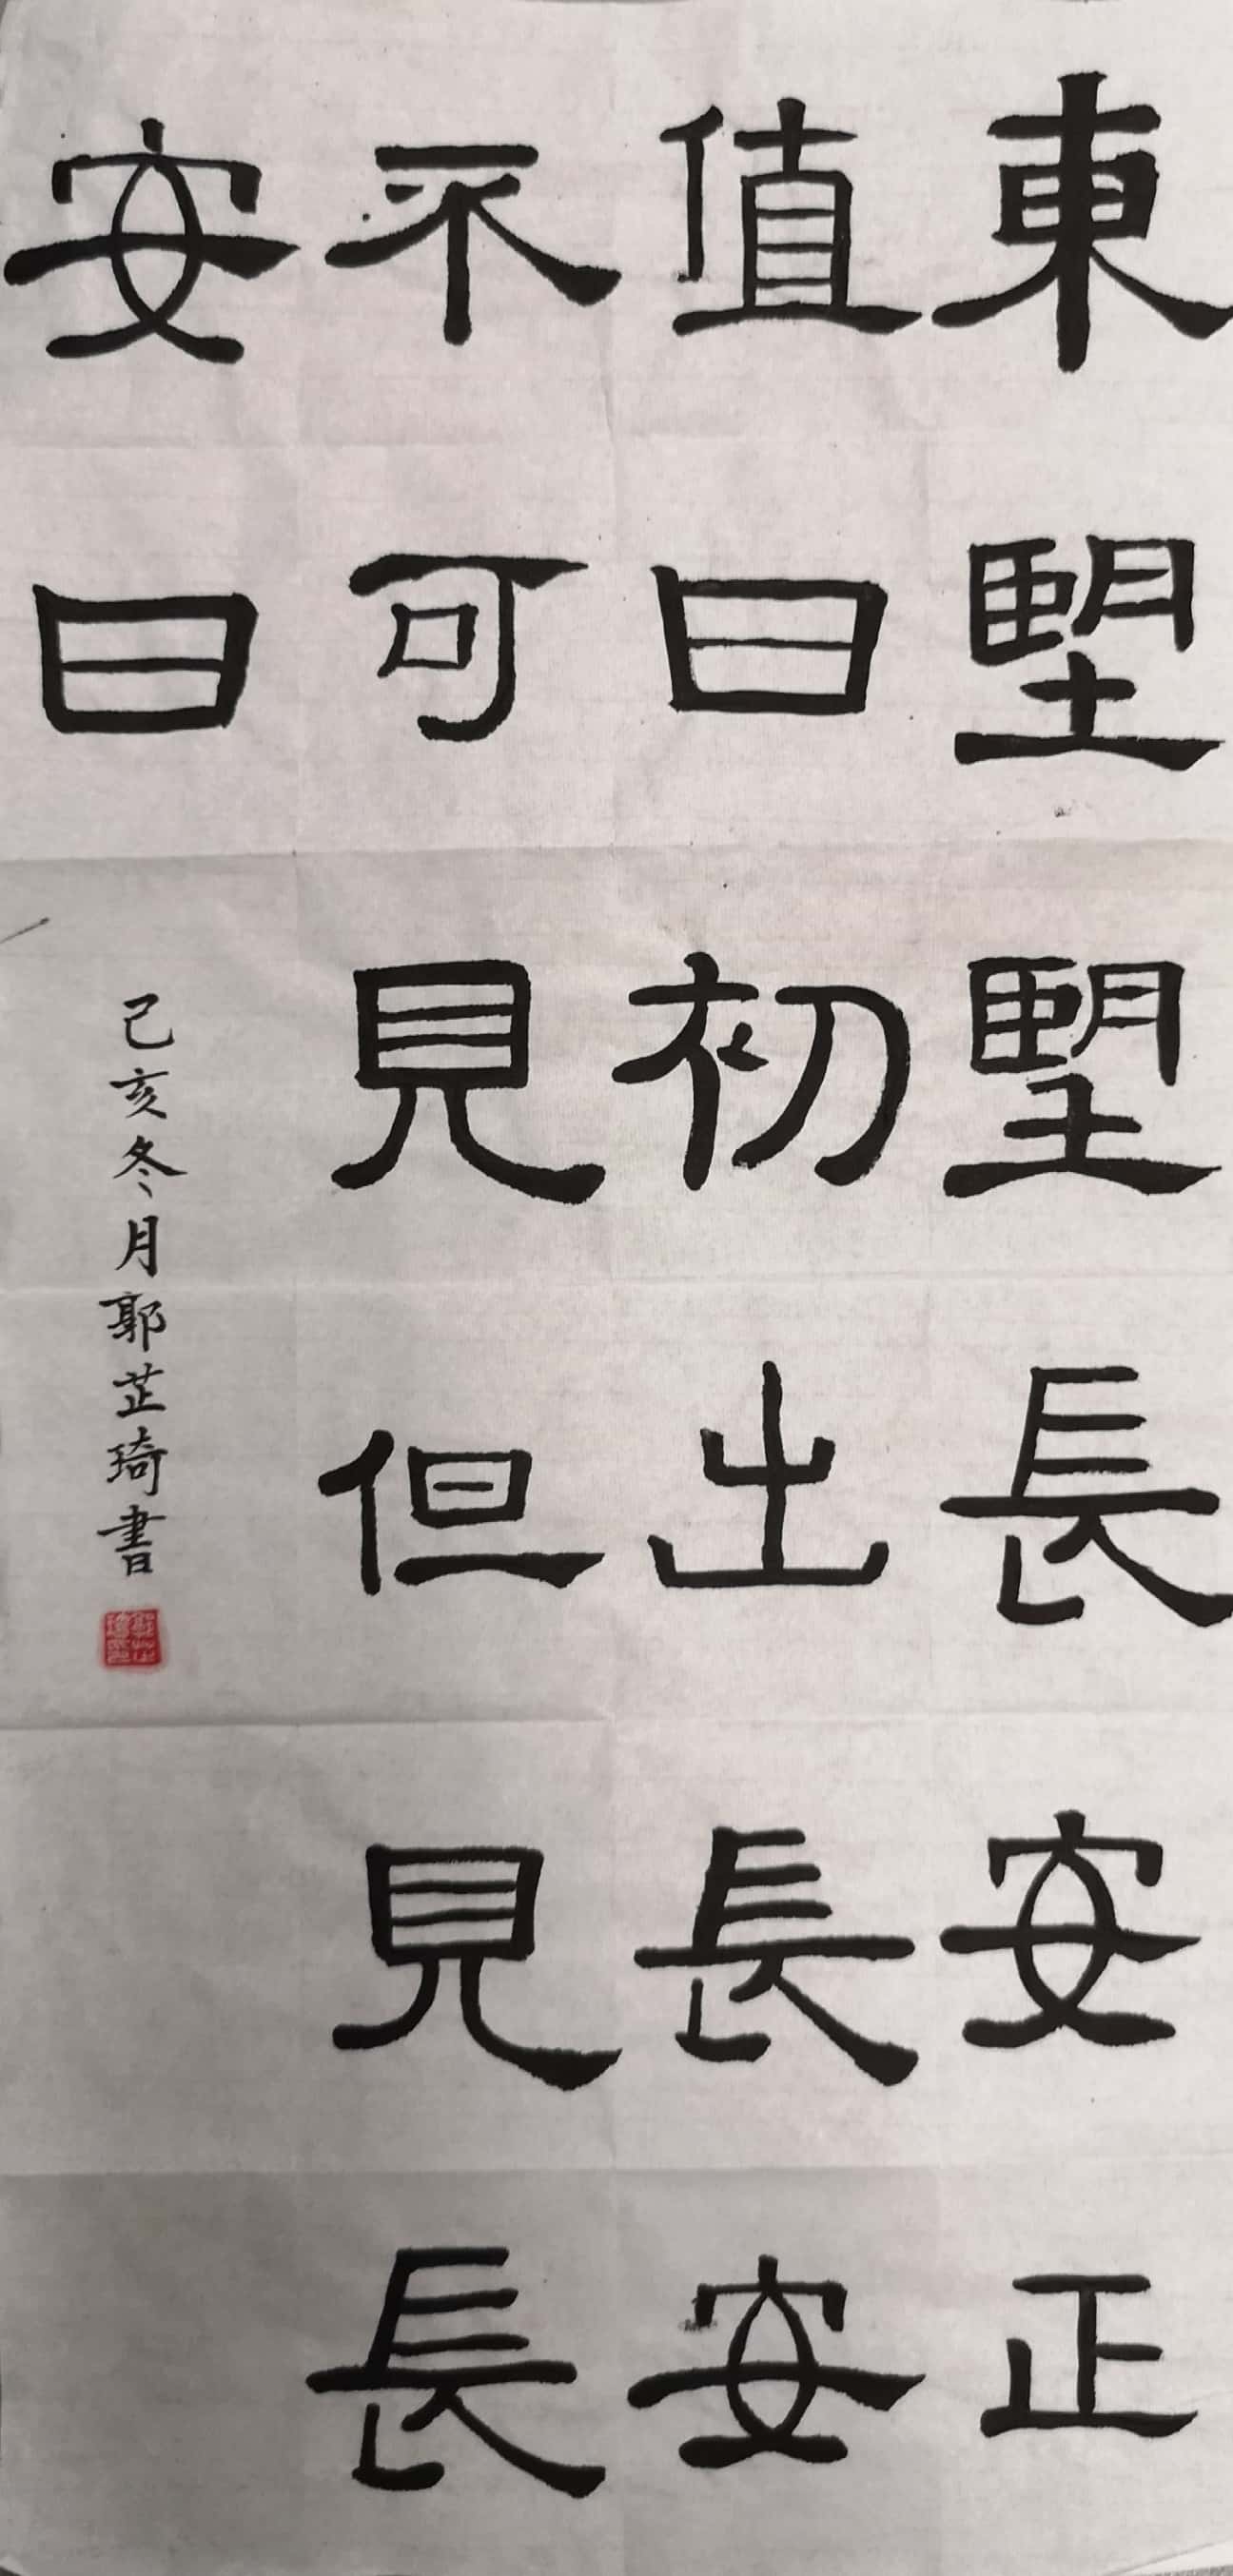 東朢朢長安正
值日初出長安
不可見但見長
安日
己亥冬月郭芷琦書